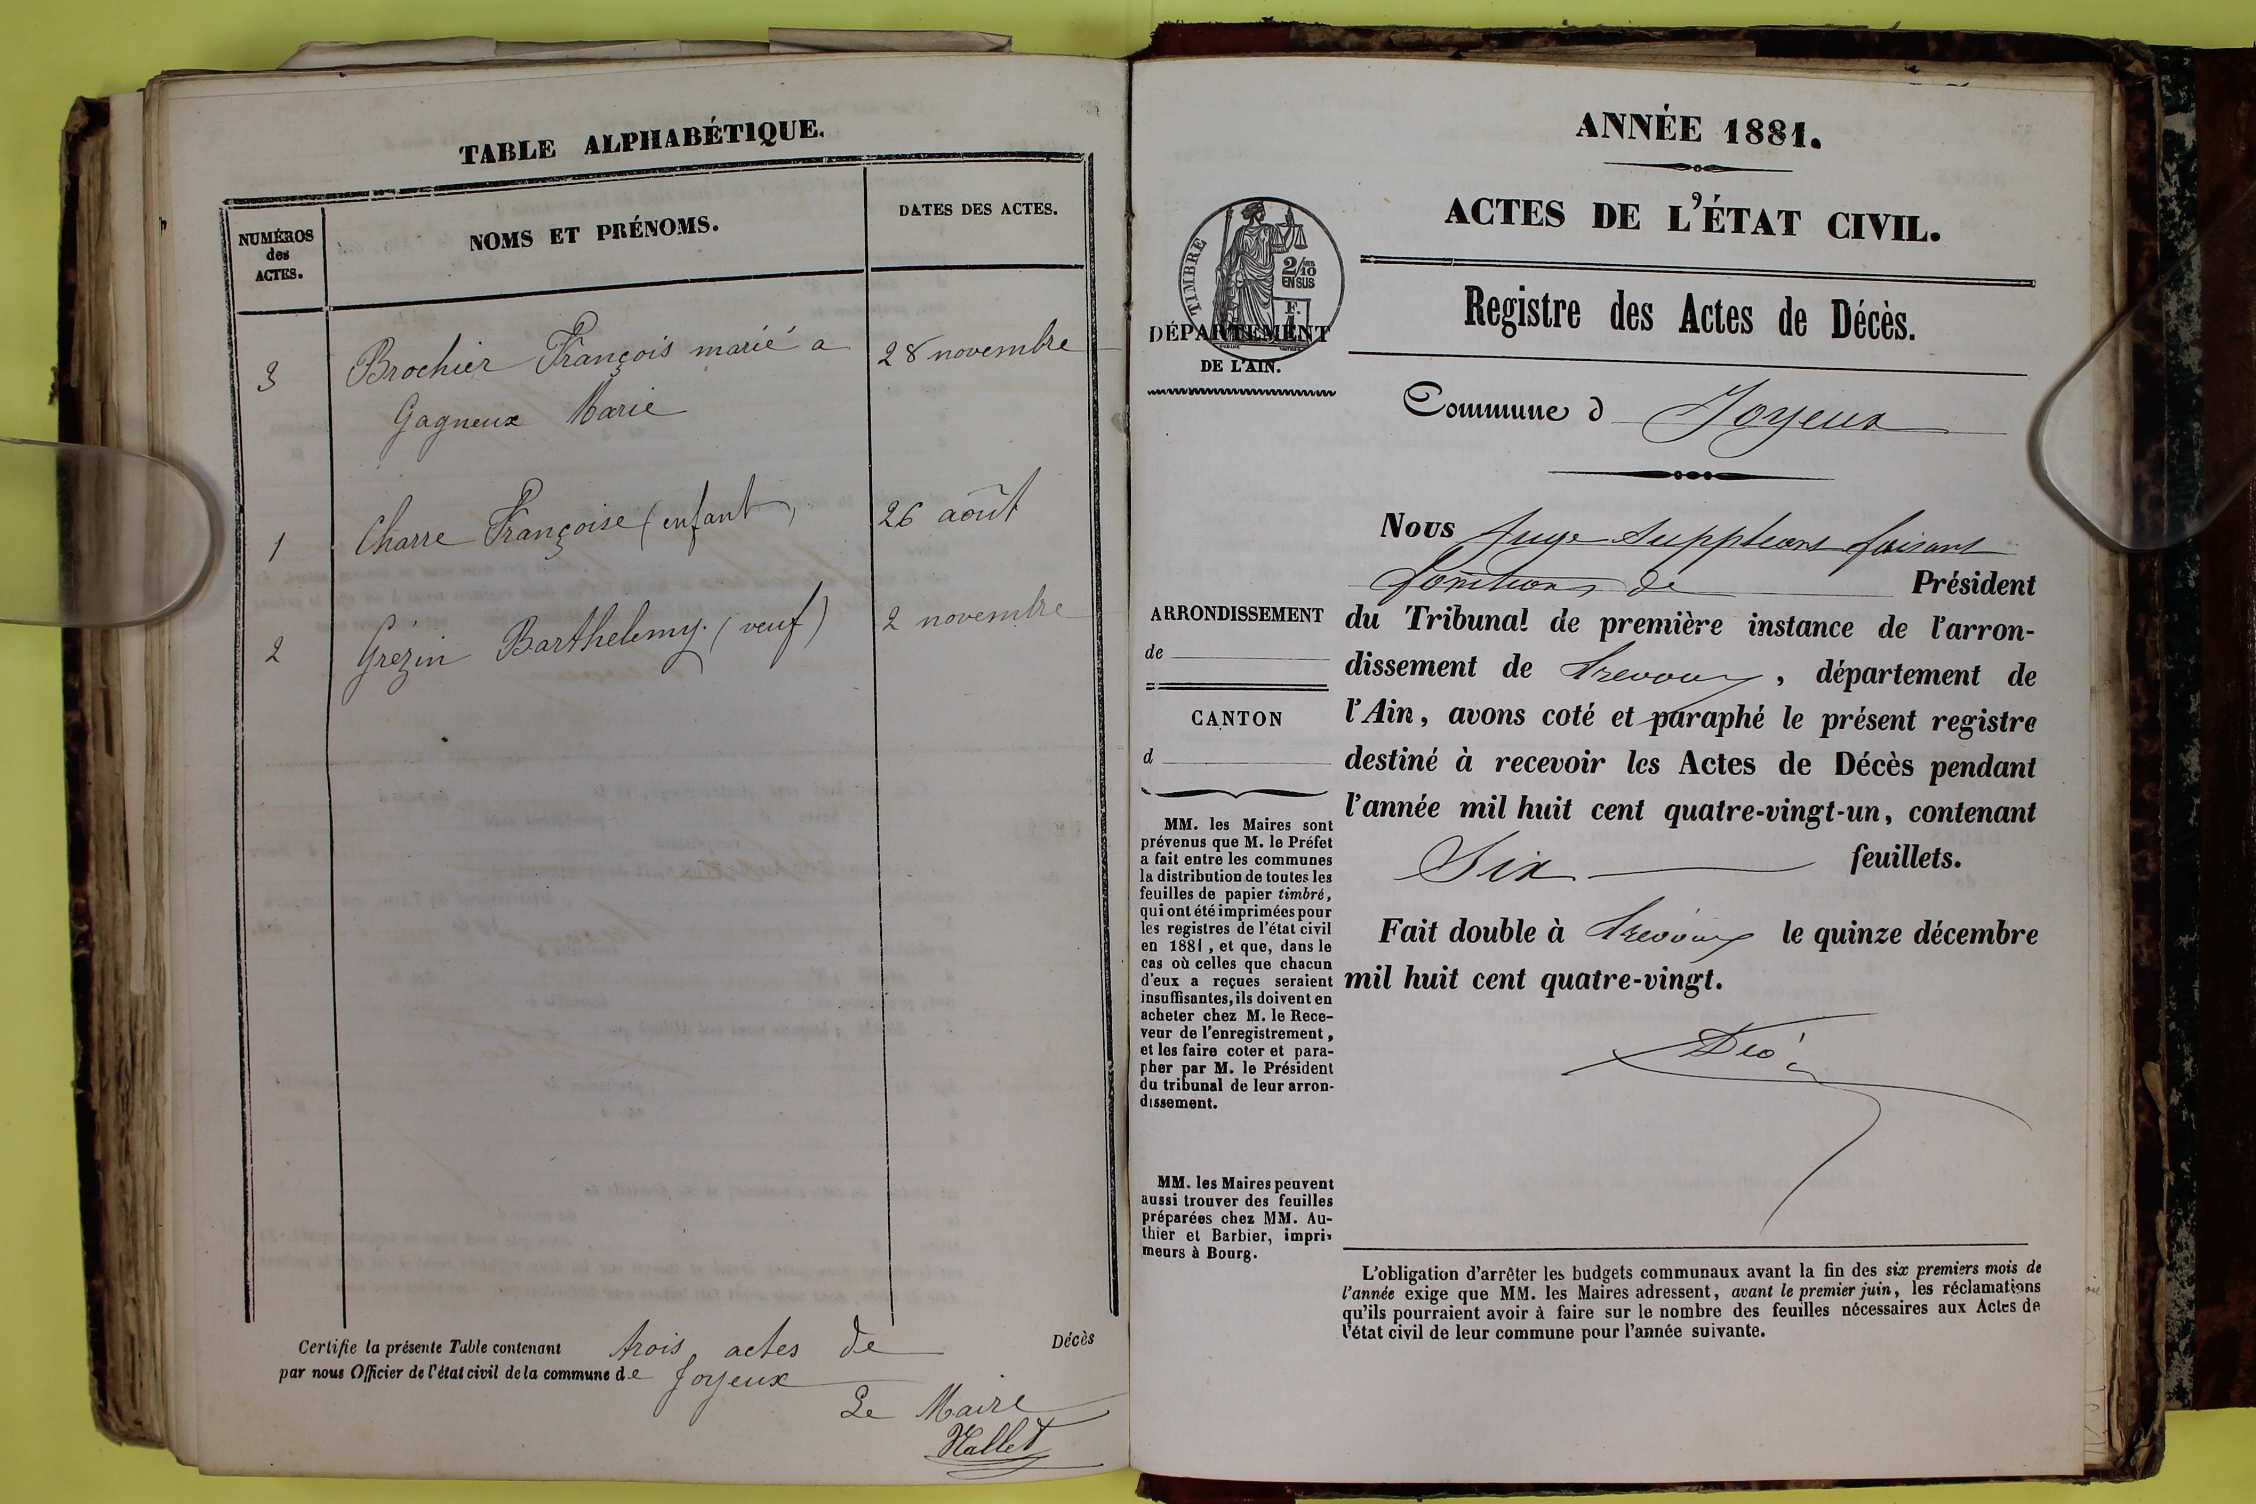 TABLE ALPHABÉTIQUE.
NUMÉROS
des
ACTES.
NOMS ET PRÉNOMS.
DATES DES ACTES.
3 Brochier François marié a 28 novembre
Gagneux Marie
1 Charre Françoise (enfant) 26 août
2 Grézin Barthelemy (veuf) 2 novembre
Certifie la présente Table contenant trois actes de Décès
par nous Officier de l'état civil de la commune de Joyeux
Le Maire
ANNÉE 1881.
ACTES DE L'ÉTAT CIVIL.
TIMBRE
2/10
EN SUS
F.
DÉPARTEMENT
DE L'AIN.
Registre des Actes de Décès.
Commune d Joyeux
ARRONDISSEMENT
de
CANTON
d
MM. les Maires sont
prévenus que M. le Préfet
a fait entre les communes
la distribution de toutes les
feuilles de papier timbré,
qui ont été imprimées pour
les registres de l'état civil
en 1881, et que, dans le
cas où celles que chacun
d'eux a reçues seraient
insuffisantes, ils doivent en
acheter chez M. le Rece-
veur de l'enregistrement,
et les faire coter et para-
pher par M. le Président
du tribunal de leur arron-
dissement.
MM. les Maires peuvent
aussi trouver des feuilles
préparées chez MM. Au-
thier et Barbier, impri-
meurs à Bourg.
Nous Juge Suppléant faisant
fonctions de Président
du Tribunal de première instance de l'arron-
dissement de Trevoux, département de
l'Ain, avons coté et paraphé le présent registre
destiné à recevoir les Actes de Décès pendant
l'année mil huit cent quatre-vingt-un, contenant
Six feuillets.
Fait double à Trevoux le quinze décembre
mil huit cent quatre-vingt.
L'obligation d'arrêter les budgets communaux avant la fin des six premiers mois de
l'année exige que MM. les Maires adressent, avant le premier juin, les réclamations
qu'ils pourraient avoir à faire sur le nombre des feuilles nécessaires aux Actes de
l'état civil de leur commune pour l'année suivante.